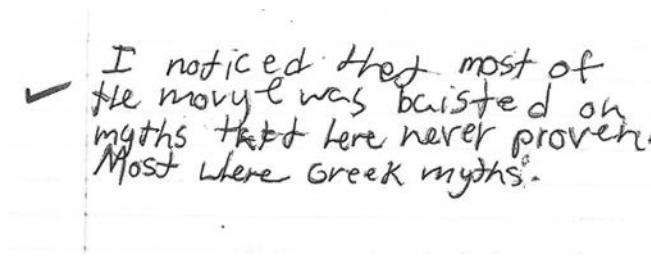 I noticed that most of
the movye was baisted on
myths that here never proven.
Most where Greek myths.